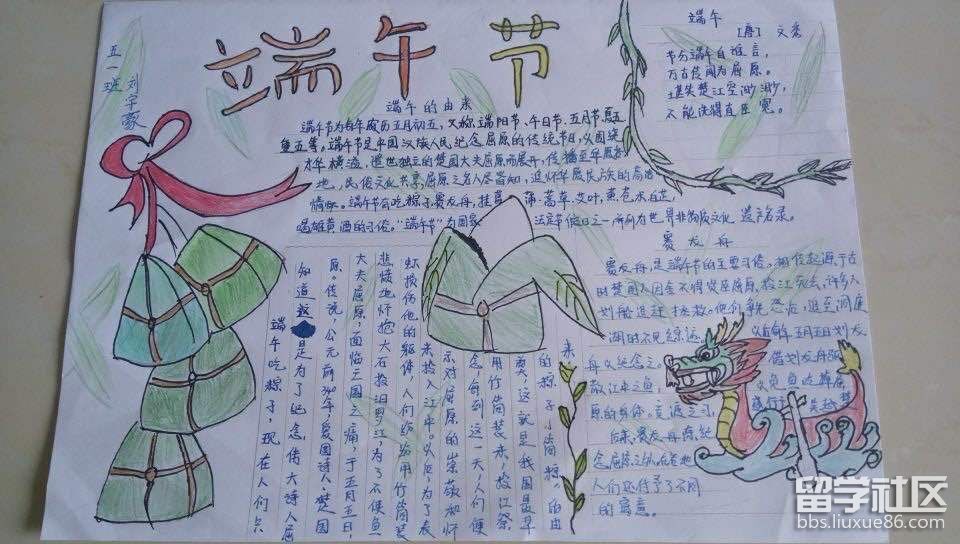 端午节
五一班
刘宇豪
端午
[唐] 文秀
节分端午自谁言，
万古传闻为屈原。
堪笑楚江空渺渺，
不能洗得直臣冤。
端午的由来
端午节为每年农历五月初五，又称端阳节、午日节、五月节
等。端午节是中国汉族人民纪念屈原的传统节日，以围绕
才华横溢、遗世独立的楚国大夫屈原而展开，传播至华夏各
地，民俗文化共享，屈原之名人尽皆知，追怀华夏民族的高洁
情怀。端午节有吃粽子，赛龙舟，挂菖蒲、蒿草、艾叶，薰苍术、白芷，
喝雄黄酒的习俗。“端午节”为国家法定节假日之一，并列为世界非物质文化遗产名录。
赛龙舟
赛龙舟，是端午节的主要习俗。相传起源于古
时楚国人因舍不得贤臣屈原投江死去，许多人
划船追赶拯救。他们争先恐后，追至洞庭
湖时不见踪迹。
每年五月五日划龙
舟以纪念之。
借划龙舟驱
散江中之鱼，
原的身体。
后来，赛龙舟除纪
念屈原之外，在各地
人们还付予了不同
的寓意。
端午吃粽子，现在人们只
知道这是为了纪念伟大诗人屈
原。传说，公元前340年，爱国诗人、楚国
大夫屈原，面临亡国之痛，于五月五日，
悲愤地怀抱大石投汨罗江，为了不使鱼
虾损伤他的躯体，人们纷纷用竹筒装
米投入江中。以后，为了表
示对屈原的崇敬和怀
念，每到这一天，人们便
用竹筒装米，投江祭
奠，这就是我国最早
的粽子“筒粽”的由
来。
留学社区
bbs.liuxue86.com